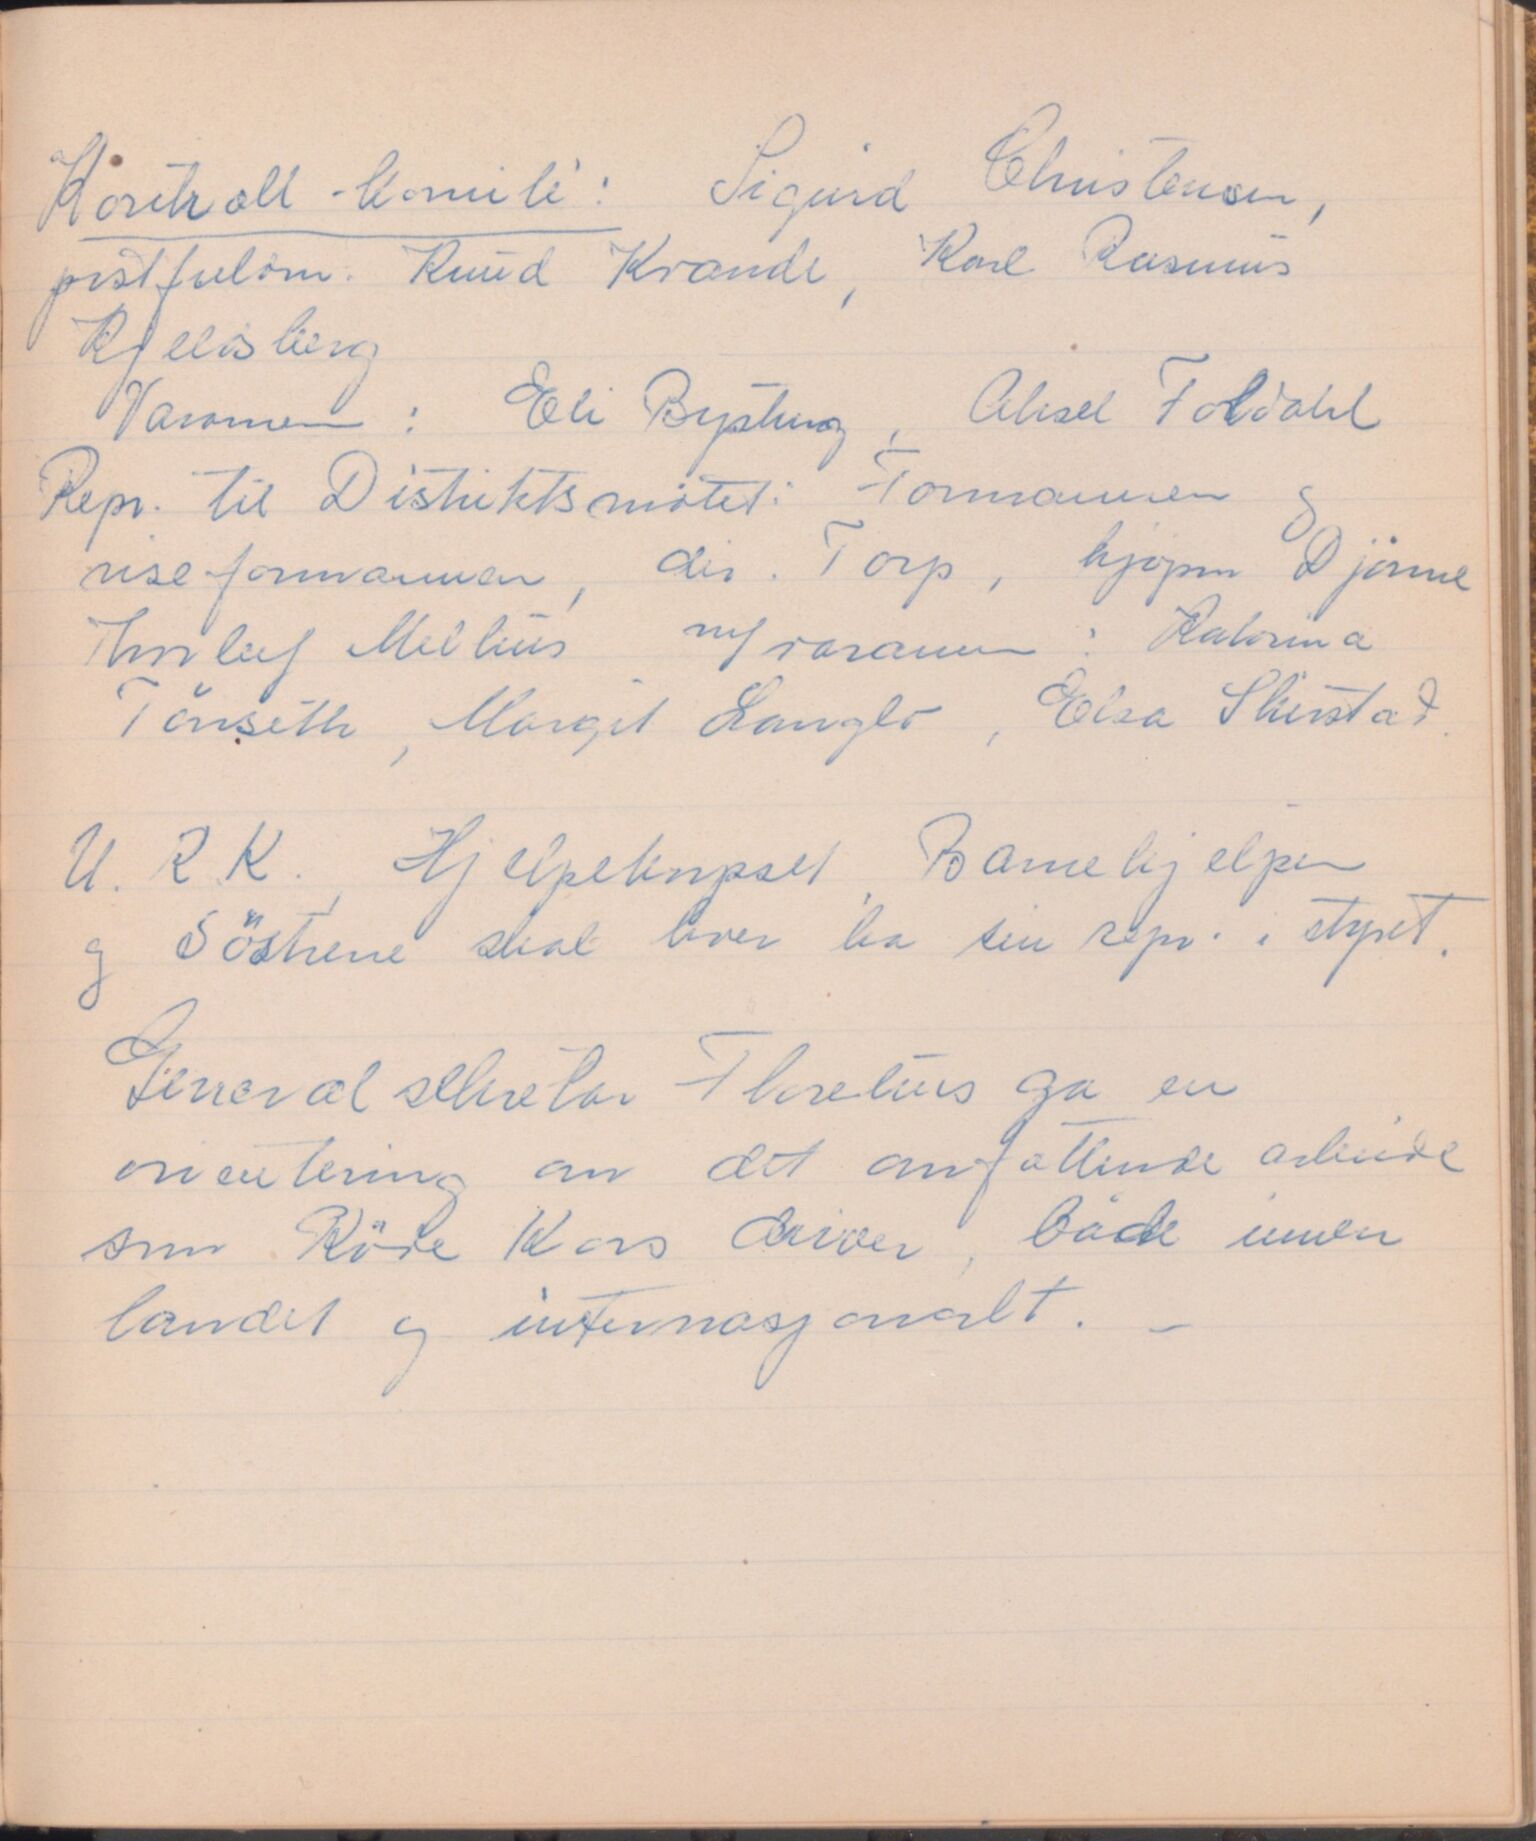 Kontroll-komité: Sigurd Christensen,
postfullm. Knud Krande, Karl Rasmus
Kjelsberg
Varamenn: Eli Bystung, Aksel Foldahl
Repr. til Distriktsmøtet: Formannen og
viseformannen, dir. Torp, kjøpm Djønne
Thorleif Mellius m/varamenn: Katarina
Tönseth, Margit Langlo, Elsa Skirstad.
U. R K., Hjelpekorpset, Barnehjelpen
og Söstrene skal hver ha sin repr. i styret.
Generalsekretær Floretius ga en
orientering om det omfattende arbeide
som Röde Kors driver, både innen
landet og internasjonalt. –